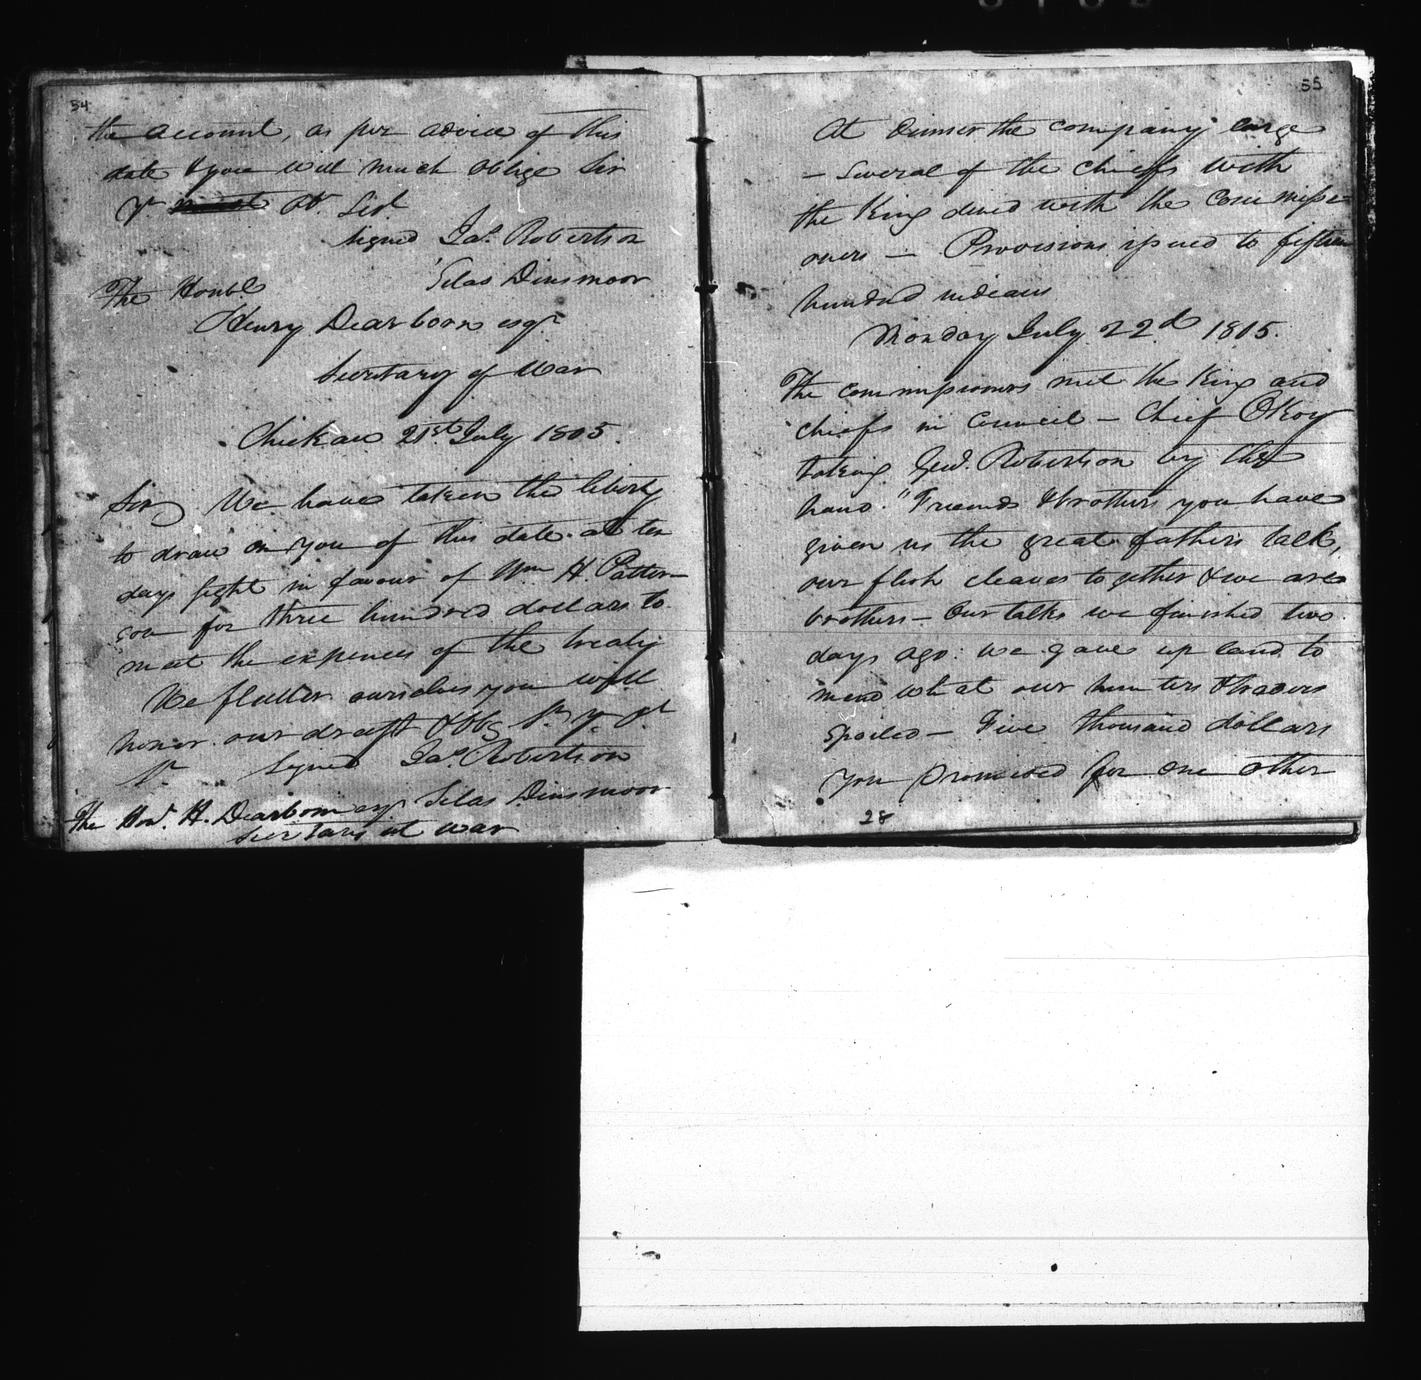 54
the account, as per advice of this
date & you will much oblige Sir
Yr Obt. Sevt.
Signed Jas. Robertson
Silas Dinsmoor
The Honble
Henry Dearborn esqr
Secretary of War
Chickasaw 21st July 1805.
Sir We have taken the liberty
to draw on you of this date at ten
days sight in favour of Wm H. Patter-
son for three hundred dollars to
meet the expences of the treaty
We flatter ourselves you will
honor our draft & Oblg Sr yr obt
St Signed Jas. Robertson
The Hon. H. Dearborn esqr Silas Dinsmoor
Secretary at war
55
At dinner the company large
– Several of the chiefs with
the King dined with the Commissi-
oners – Provisions issued to fifteen
hundred indians
Monday July 22d 1805.
The commissioners met the King and
chiefs in Council – Chief OKoy
taking Genl. Robertson by the
hand. "Friends & brothers you have
given us the great fathers talk,
our flesh cleaves together & we are
brothers – Our talks we finished two
days ago: we gave up land to
mend what our hunters & traders
spoiled – Five thousand dollars
you promised for one other
28